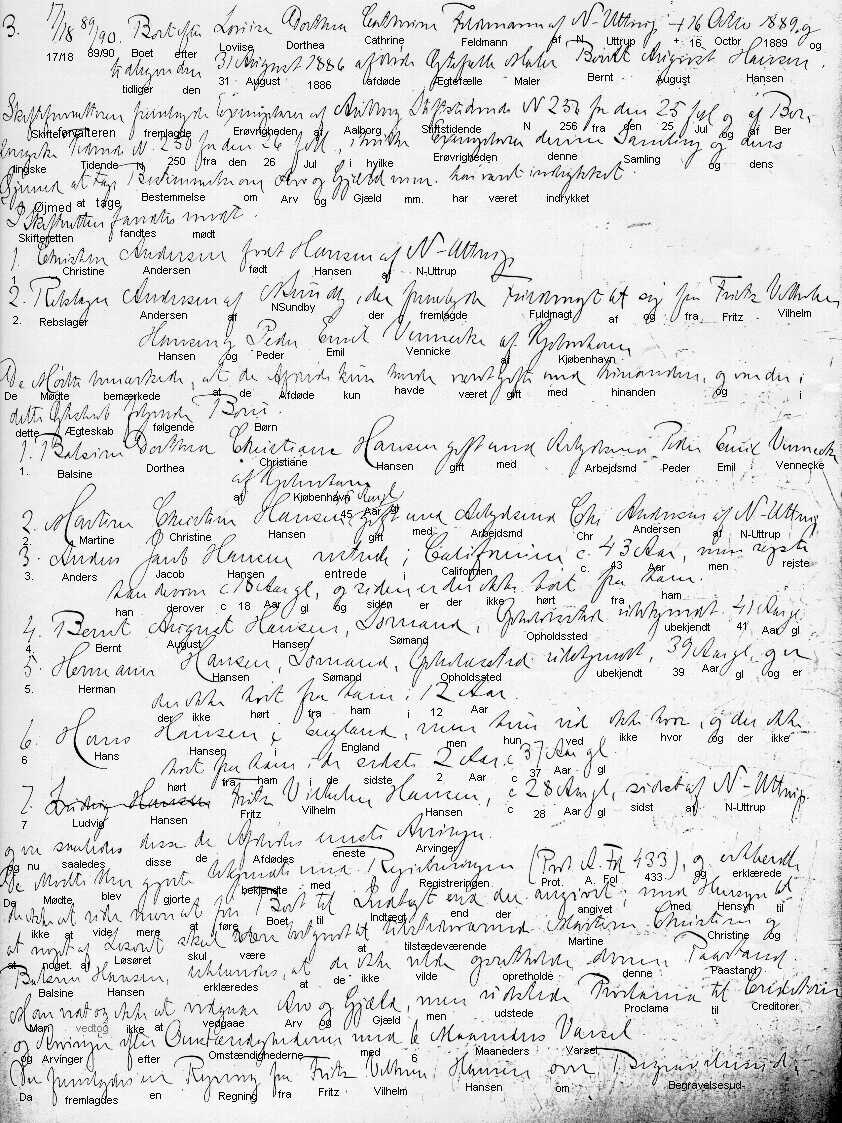 3. 17/18 89/90 Boet efter Loviise Dorthea Cathrine Feldmann af N Uttrup + 16 Octbr 1889 og
tidliger den 31 August 1886 afdøde Egtefælle Maler Bernt August Hansen.
Skifteforvalteren fremlagde Erøvrigheden af Aalborg Stiftstidende N 256 fra den 25 Jul og af Ber
lingske Tidende N 250 fra den 26 Jul i hvilke Erøvrigheden denne Samling og dens
Øjmed at tage Bestemmelse om Arv og Gjæld mm. har været indrykket
I Skifteretten fandtes mødt
1. Christine Andersen født Hansen af N-Uttrup
2. Rebslager Andersen af NSundby der fremlagde Fuldmagt af og fra Fritz Vilhelm
Hansen og Peder Emil Vennicke af Kjøbenhavn
De Mødte bemærkede at de Afdøde kun havde været gift med hinanden og i
dette Ægteskab følgende Børn
1. Balsine Dorthea Christiane Hansen gift med Arbejdsmd Peder Emil Vennecke
af Kjøbenhavn
45 Aar gl
2. Martine Christine Hansen gift med Arbejdsmd Chr Andersen af N-Uttrup
3. Anders Jacob Hansen entrede i Californien c. 43 Aar men rejste
han derover c 18 Aar gl og siden er der ikke hørt fra ham
4. Bernt August Hansen Sømand Opholssted ubekjendt 41 Aar gl
5. Herman Hansen Sømand Opholssted ubekjendt 39 Aar gl og er
der ikke hørt fra ham i 12 Aar
6 Hans Hansen England men hun ved ikke hvor og der ikke
hørt fra ham i de sidste 2 Aar c 37 Aar gl
7 Ludvig Hansen Fritz Vilhelm Hansen c 28 Aar gl sidst af N-Uttrup
og nu saaledes disse de Afdødes eneste Arvinger
De Mødte blev gjorte bekjendte med Registreringen Prot. A. Fol 433 og erklærede
ikke at vide mere at føre Boet til Indtægt end der angivet med Hensyn til
at noget af Løsøret skul være at tilstædeværende Martine Christine og
Balsine Hansen erklæredes at de ikke vilde opretholde denne Paastand
Man vedtog ikke at vedgaae Arv og Gjæld men udstede Proclama til Creditorer
og Arvinger efter Omstændighederne med 6 Maaneders Varsel
Da fremlagdes en Regning fra Fritz Vilhelm Hansen om Begravelsesud-